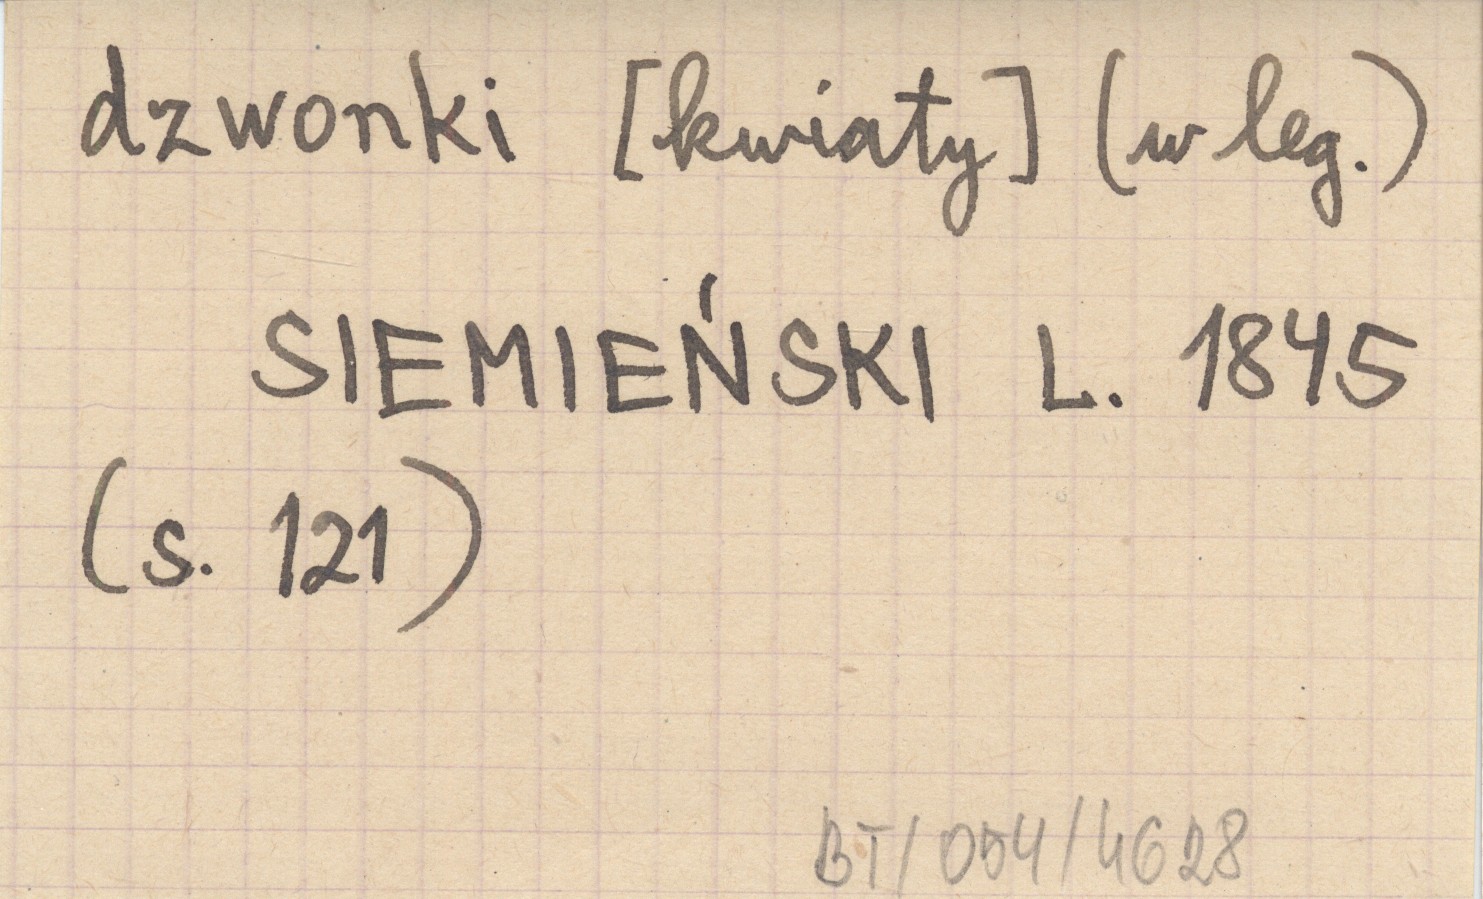 dzwonki [kwiaty] (w leg.)
SIEMIEŃSKI L. 1845
(s. 121)
BT/004/4628